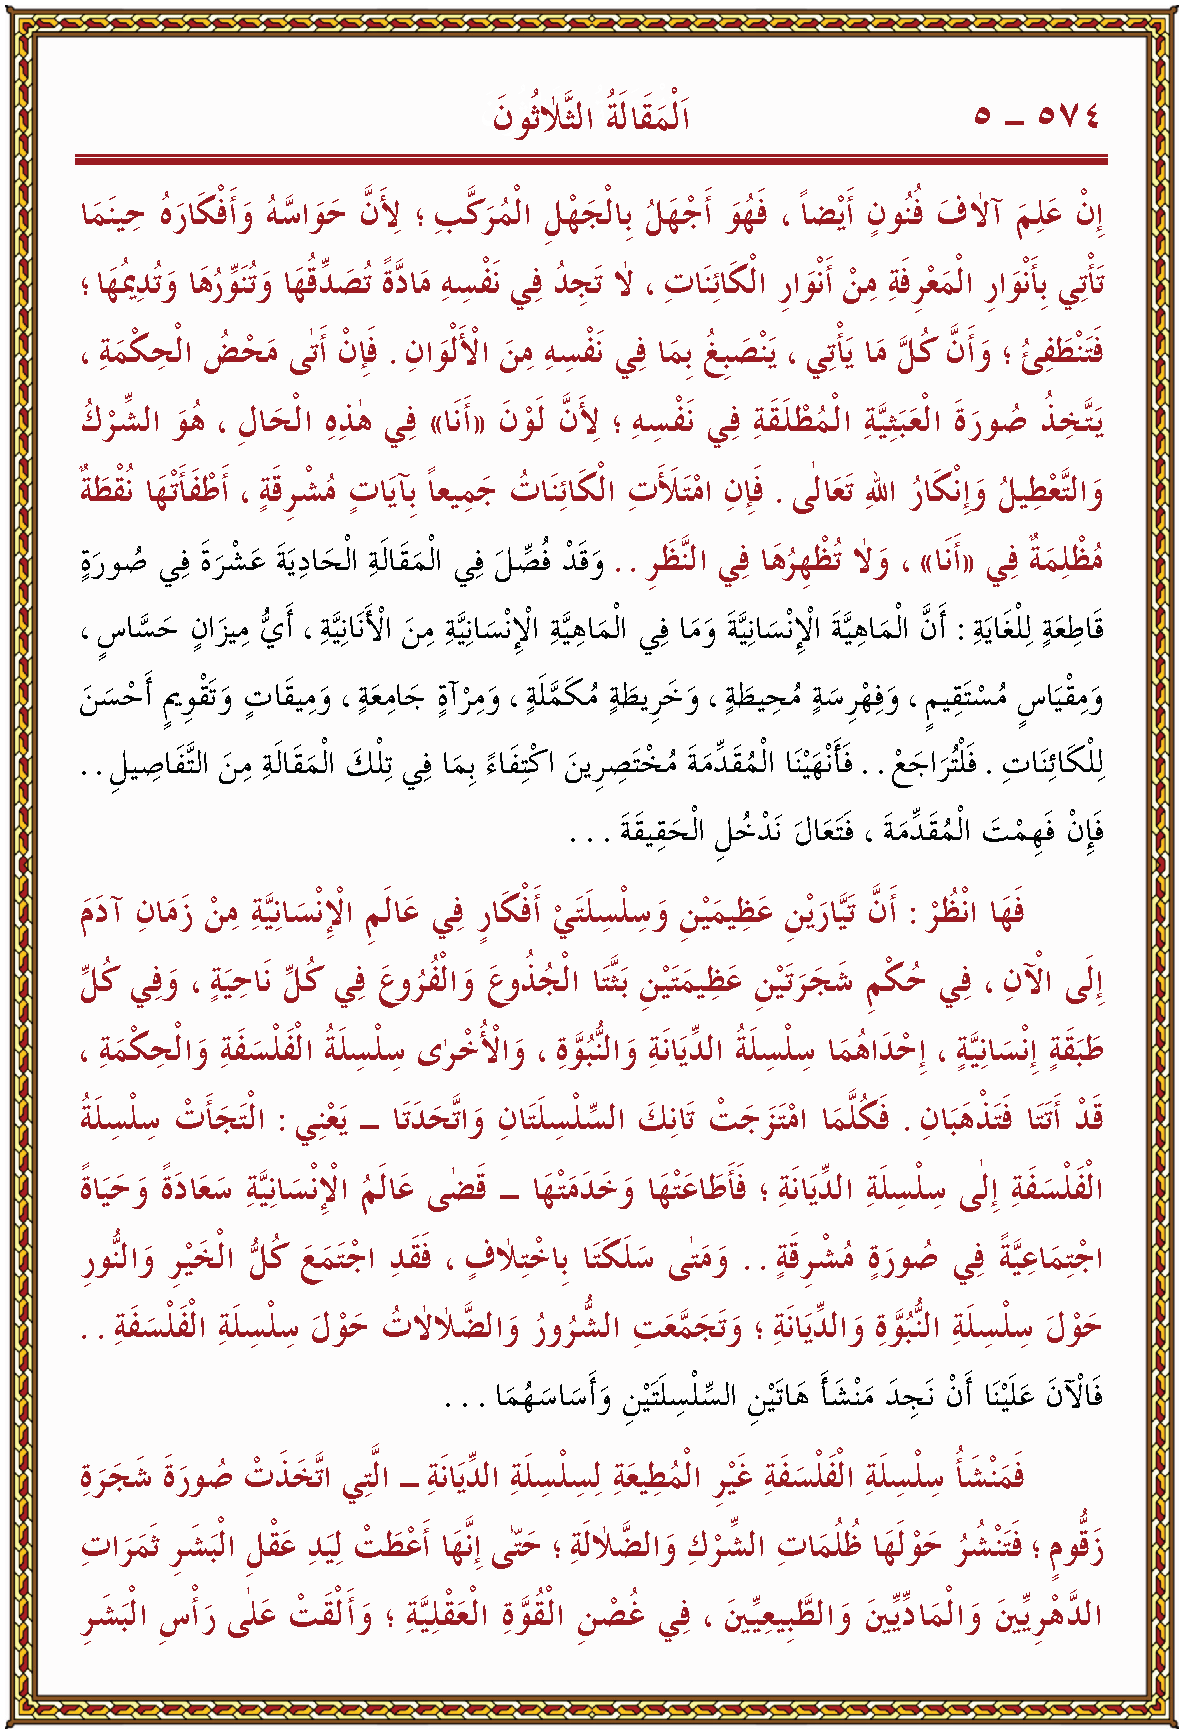 ٥٧٤ – ٥ اَلْمَقَالَةُ الثَّلاٰثُونَ
إِنْ عَلِمَ آلاٰفَ فُنُونٍ أَيْضاً ، فَهُوَ أَجْهَلُ بِالْجَهْلِ الْمُرَكَّبِ ؛ لِأَنَّ حَوَاسَّهُ وَأَفْكَارَهُ حِينَمَا
تَأْتِي بِأَنْوَارِ الْمَعْرِفَةِ مِنْ أَنْوَارِ الْكَائِنَاتِ ، لاٰ تَجِدُ فِي نَفْسِهِ مَادَّةً تُصَدِّقُهَا وَتُنَوِّرُهَا وَتُدِيمُهَا ؛
فَتَنْطَفِئُ ؛ وَأَنَّ كُلَّ مَا يَأْتِي ، يَنْصَبِغُ بِمَا فِي نَفْسِهِ مِنَ الْأَلْوَانِ . فَإِنْ أَتٰى مَحْضُ الْحِكْمَةِ ،
يَتَّخِذُ صُورَةَ الْعَبَثِيَّةِ الْمُطْلَقَةِ فِي نَفْسِهِ ؛ لِأَنَّ لَوْنَ «أَنَا» فِي هٰذِهِ الْحَالِ ، هُوَ الشِّرْكُ
وَالتَّعْطِيلُ وَإِنْكَارُ اللهِ تَعَالٰى . فَإِنِ امْتَلَأَتِ الْكَائِنَاتُ جَمِيعاً بِآيَاتٍ مُشْرِقَةٍ ، أَطْفَأَتْهَا نُقْطَةٌ
مُظْلِمَةٌ فِي «أَنَا» ، وَلاٰ تُظْهِرُهَا فِي النَّظَرِ . . وَقَدْ فُصِّلَ فِي الْمَقَالَةِ الْحَادِيَةَ عَشْرَةَ فِي صُورَةٍ
قَاطِعَةٍ لِلْغَايَةِ : أَنَّ الْمَاهِيَّةَ الْإِنْسَانِيَّةَ وَمَا فِي الْمَاهِيَّةِ الْإِنْسَانِيَّةِ مِنَ الْأَنَانِيَّةِ ، أَيُّ مِيزَانٍ حَسَّاسٍ ،
وَمِقْيَاسٍ مُسْتَقِيمٍ ، وَفِهْرِسَةٍ مُحِيطَةٍ ، وَخَرِيطَةٍ مُكَمَّلَةٍ ، وَمِرْآةٍ جَامِعَةٍ ، وَمِيقَاتٍ وَتَقْوِيمٍ أَحْسَنَ
لِلْكَائِنَاتِ . فَلْتُرَاجَعْ . . فَأَنْهَيْنَا الْمُقَدِّمَةَ مُخْتَصِرِينَ اكْتِفَاءً بِمَا فِي تِلْكَ الْمَقَالَةِ مِنَ التَّفَاصِيلِ . .
فَإِنْ فَهِمْتَ الْمُقَدِّمَةَ ، فَتَعَالَ نَدْخُلِ الْحَقِيقَةَ . . .
فَهَا انْظُرْ : أَنَّ تَيَّارَيْنِ عَظِيمَيْنِ وَسِلْسِلَتَيْ أَفْكَارٍ فِي عَالَمِ الْإِنْسَانِيَّةِ مِنْ زَمَانِ آدَمَ
إِلَى الْآنِ ، فِي حُكْمِ شَجَرَتَيْنِ عَظِيمَتَيْنِ بَثَّتَا الْجُذُوعَ وَالْفُرُوعَ فِي كُلِّ نَاحِيَةٍ ، وَفِي كُلِّ
طَبَقَةٍ إِنْسَانِيَّةٍ ، إِحْدَاهُمَا سِلْسِلَةُ الدِّيَانَةِ وَالنُّبُوَّةِ ، وَالْأُخْرٰى سِلْسِلَةُ الْفَلْسَفَةِ وَالْحِكْمَةِ ،
قَدْ أَتَتَا فَتَذْهَبَانِ . فَكُلَّمَا امْتَزَجَتْ تَانِكَ السِّلْسِلَتَانِ وَاتَّحَدَتَا – يَعْنِي : الْتَجَأَتْ سِلْسِلَةُ
الْفَلْسَفَةِ إِلٰى سِلْسِلَةِ الدِّيَانَةِ ؛ فَأَطَاعَتْهَا وَخَدَمَتْهَا – قَضٰى عَالَمُ الْإِنْسَانِيَّةِ سَعَادَةً وَحَيَاةً
اجْتِمَاعِيَّةً فِي صُورَةٍ مُشْرِقَةٍ . . وَمَتٰى سَلَكَتَا بِاخْتِلاٰفٍ ، فَقَدِ اجْتَمَعَ كُلُّ الْخَيْرِ وَالنُّورِ
حَوْلَ سِلْسِلَةِ النُّبُوَّةِ وَالدِّيَانَةِ ؛ وَتَجَمَّعَتِ الشُّرُورُ وَالضَّلاٰلاٰتُ حَوْلَ سِلْسِلَةِ الْفَلْسَفَةِ . .
فَالْآنَ عَلَيْنَا أَنْ نَجِدَ مَنْشَأَ هَاتَيْنِ السِّلْسِلَتَيْنِ وَأَسَاسَهُمَا . . .
فَمَنْشَأُ سِلْسِلَةِ الْفَلْسَفَةِ غَيْرِ الْمُطِيعَةِ لِسِلْسِلَةِ الدِّيَانَةِ – الَّتِي اتَّخَذَتْ صُورَةَ شَجَرَةِ
زَقُّومٍ ؛ فَتَنْشُرُ حَوْلَهَا ظُلُمَاتِ الشِّرْكِ وَالضَّلاٰلَةِ ؛ حَتّٰى إِنَّهَا أَعْطَتْ لِيَدِ عَقْلِ الْبَشَرِ ثَمَرَاتِ
الدَّهْرِيِّينَ وَالْمَادِّيِّينَ وَالطَّبِيعِيِّينَ ، فِي غُصْنِ الْقُوَّةِ الْعَقْلِيَّةِ ؛ وَأَلْقَتْ عَلٰى رَأْسِ الْبَشَرِ